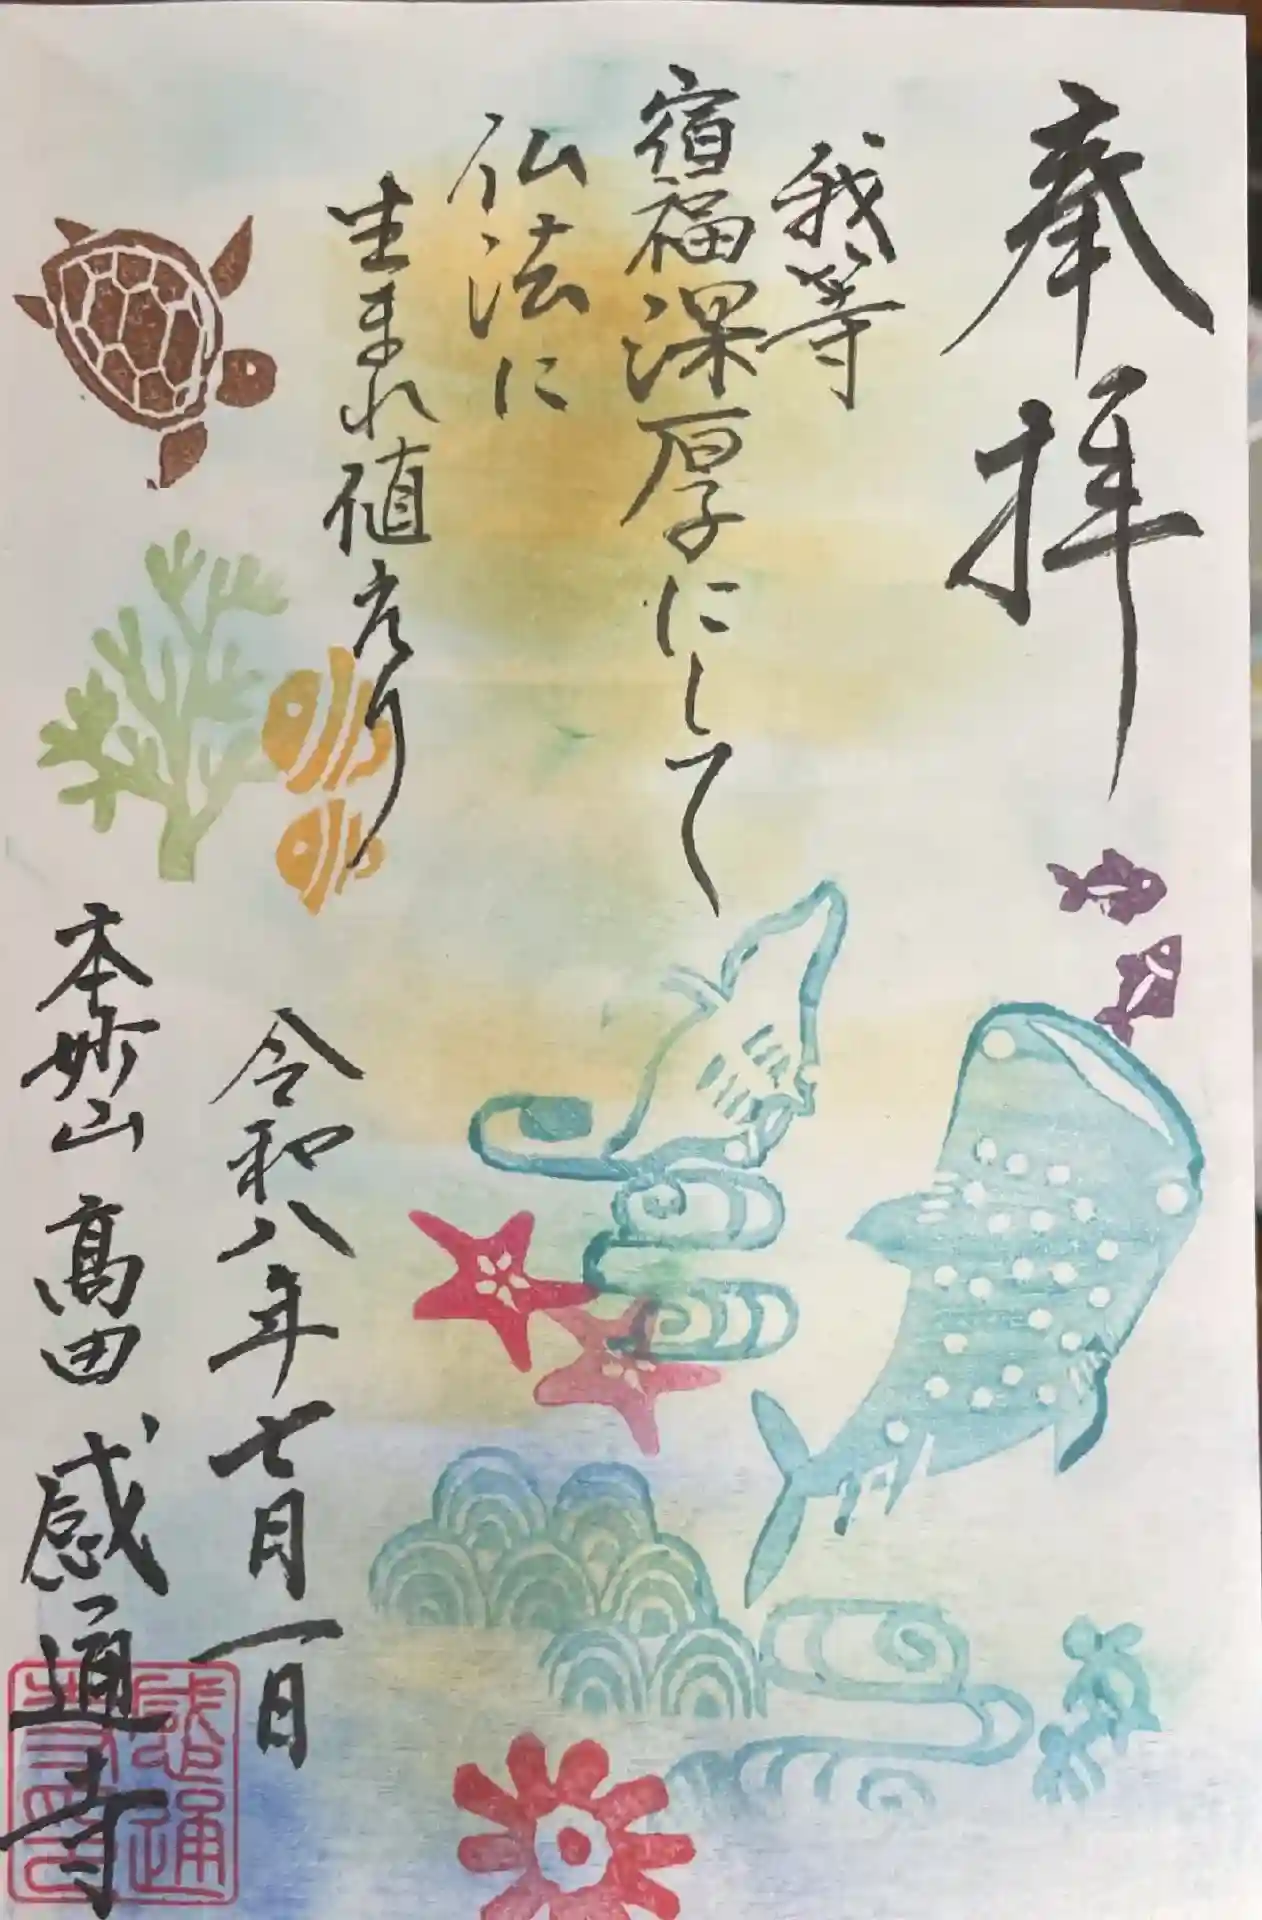 奉拝
我等
宿福深厚にして
仏法に
生まれ値えり
令和八年七月一日
本妙山 髙田 感通寺
感通